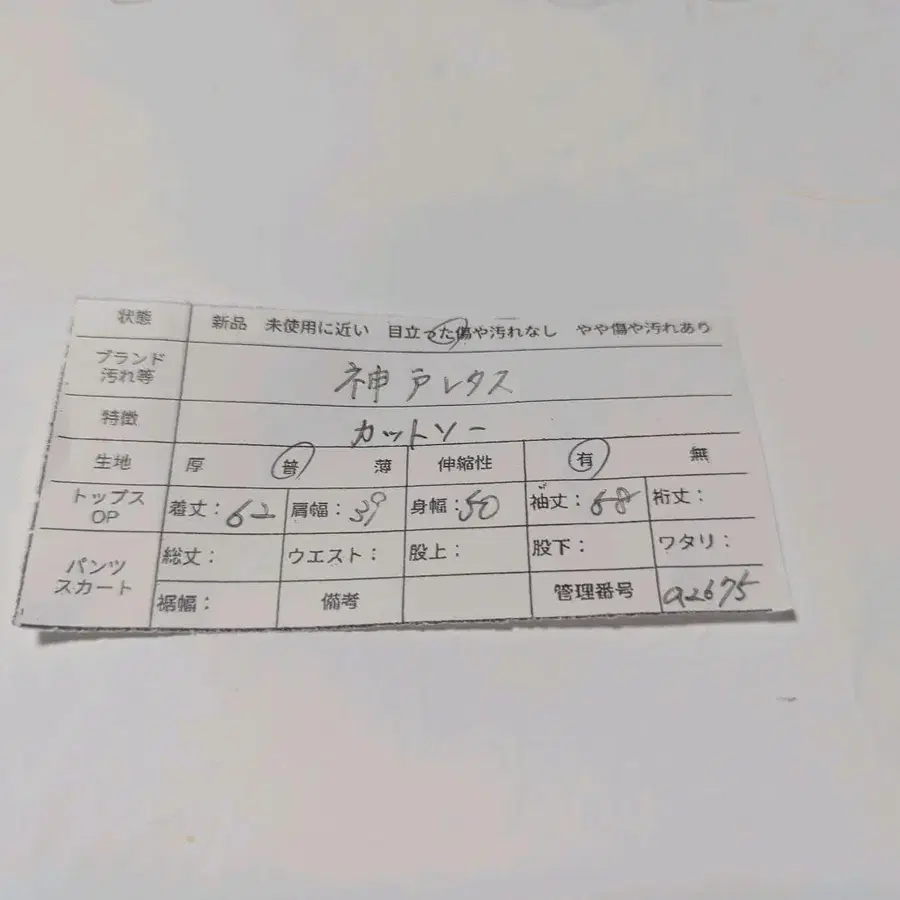 状態 新品 未使用に近い 目立った傷や汚れなし やや傷や汚れあり
ブランド 汚れ等 神戸レタス
特徴 カットソー
生地 厚 普 薄 伸縮性 有 無
トップス OP 着丈：62 肩幅：39 身幅：50 袖丈：68 裄丈：
パンツ スカート 総丈： ウエスト： 股上： 股下： ワタリ：
裾幅： 備考 管理番号 a2675